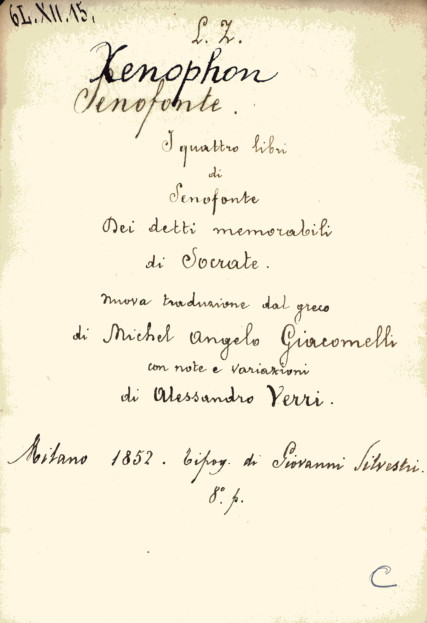 6L.XII.15,
L. Z.
Xenophon
Senofonte.
I quattro libri
di
Senofonte
Dei detti memorabili
di Socrate.
Nuova traduzione dal greco
di Michel Angelo Giacomelli
con note e variazioni
di Alessandro Verri.
Milano 1852. Tipog. di Giovanni Silvestri.
8º p.
C